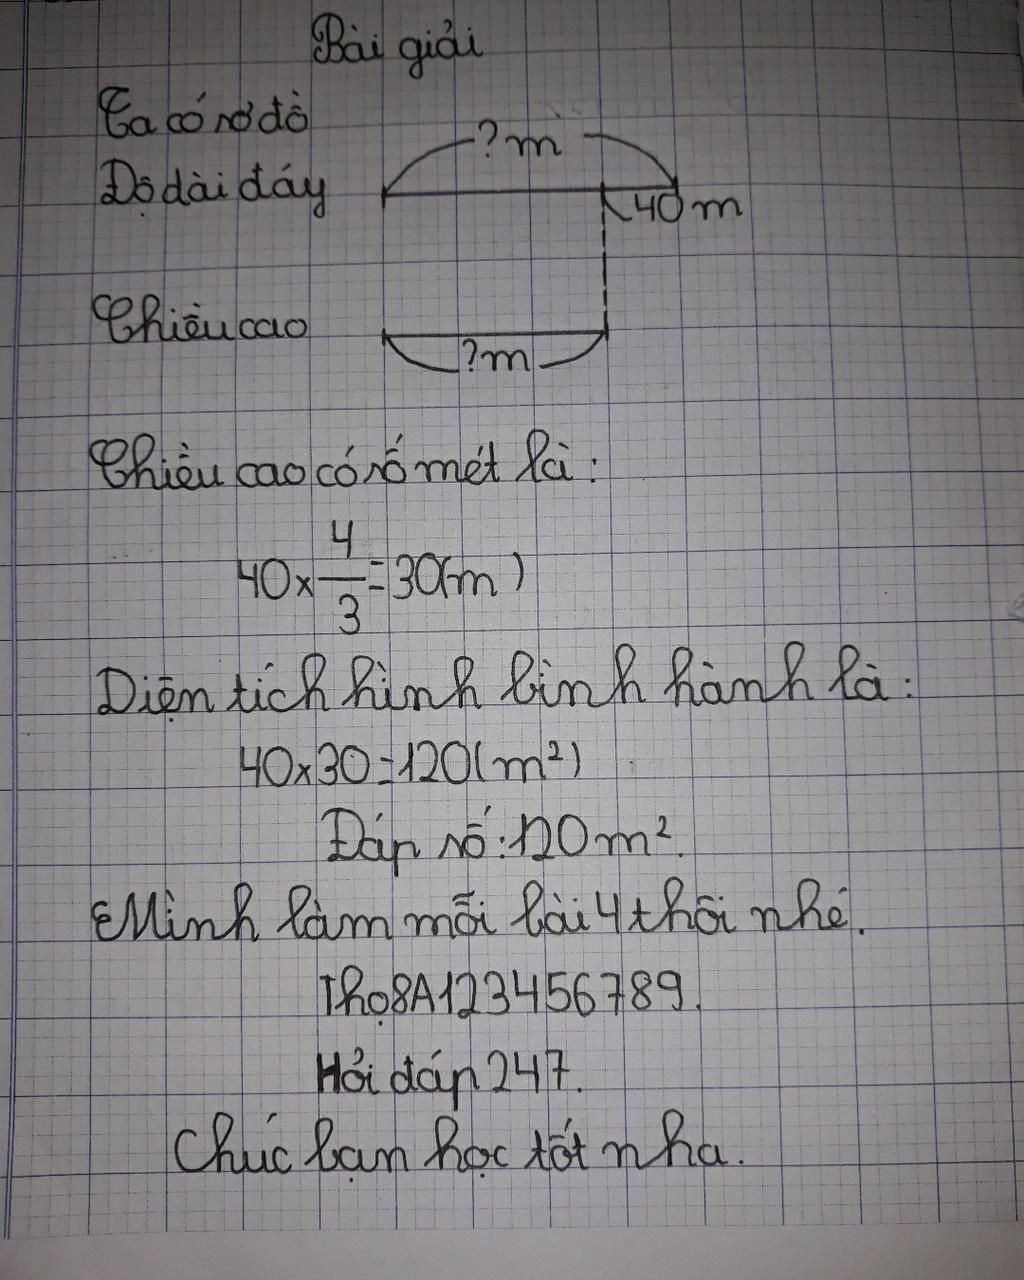 Bài giải
Ta có sơ đồ
?m
Độ dài đáy
40m
Chiều cao
?m
Chiều cao có số mét là:
40 × 4/3 = 30(m)
Diện tích hình bình hành là:
40 × 30 = 120(m²)
Đáp số: 120m².
Mình làm mỗi bài 4 thôi nhé.
Thọ8A123456789.
Hỏi đáp 247.
Chúc bạn học tốt nha.